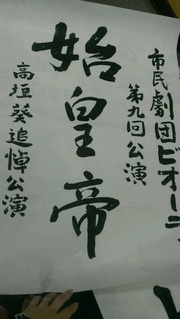 市民劇団ビオーラ
第九回公演
始皇帝
高垣葵追悼公演